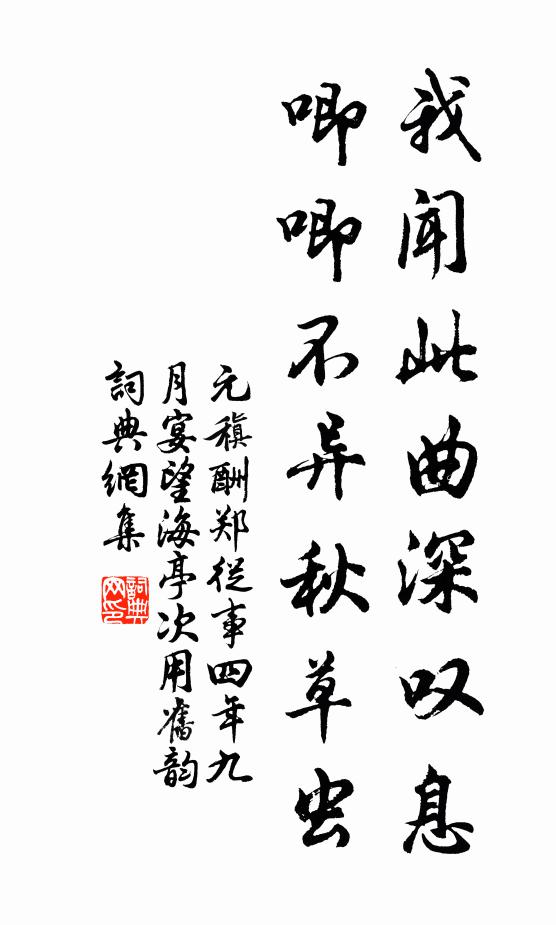 我闻此曲深叹息
唧唧不异秋草虫
元稹酬郑從事四年九
月宴望海亭次用舊韵
詞典網集
詞典網印